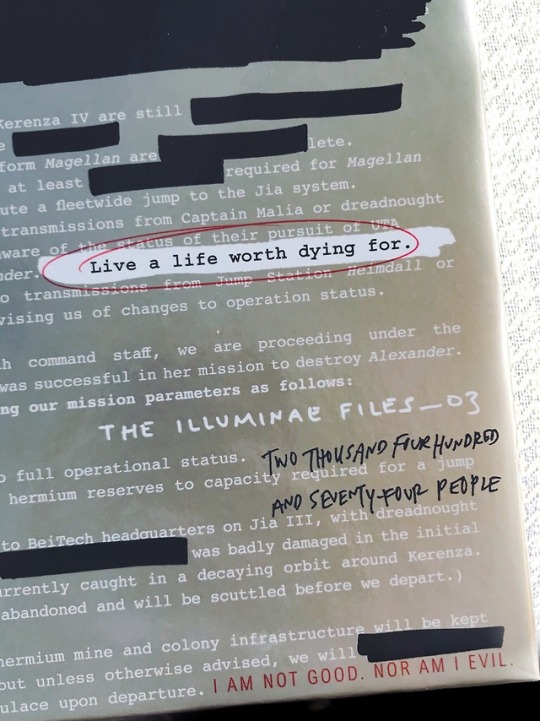 Kerenza IV are still
form Magellan are lete.
at least required for Magellan
ute a fleetwide jump to the Jia system.
transmissions from Captain Malia or dreadnought
ware of the status of their pursuit of UTA
nder.
Live a life worth dying for.
o transmissions from Jump Station Heimdall or
vising us of changes to operation status.
h command staff, we are proceeding under the
was successful in her mission to destroy Alexander.
ng our mission parameters as follows:
THE ILLUMINAE FILES_03
o full operational status.
TWO THOUSAND FOUR HUNDRED
hermium reserves to capacity required for a jump
AND SEVENTY-FOUR PEOPLE
to BeiTech headquarters on Jia III, with dreadnought
was badly damaged in the initial
urrently caught in a decaying orbit around Kerenza.
abandoned and will be scuttled before we depart.)
hermium mine and colony infrastructure will be kept
out unless otherwise advised, we will
ulace upon departure.
I AM NOT GOOD. NOR AM I EVIL.